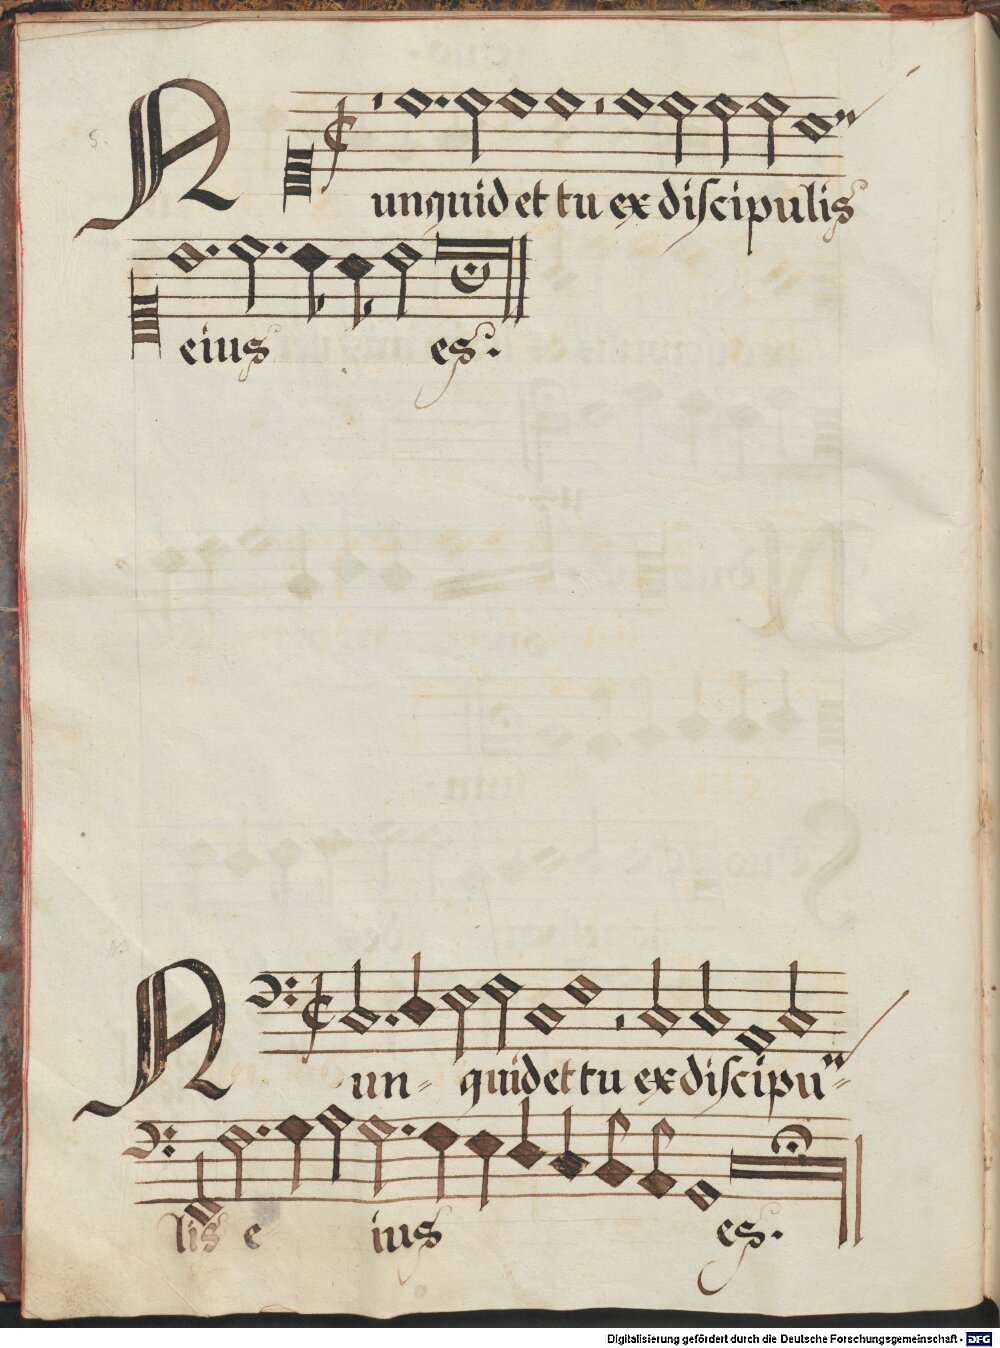 5.
Nunquid et tu ex discipulis
eius es.
Nun= quid et tu ex discipu=
lis e- ius es.
Digitalisierung gefördert durch die Deutsche Forschungsgemeinschaft - DFG